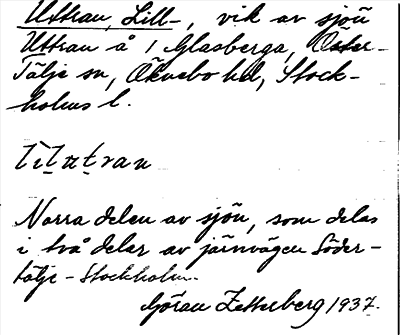 Uttran, Lill-, vik av sjön
Uttran å 1 Glasberga, Öster-
Tälje sn, Öknebo hd, Stock-
holms l.
Norra delen av sjön, som delas
i två delar av järnvägen Söder-
tälje - Stockholm.
Göran Zetterberg 1937.